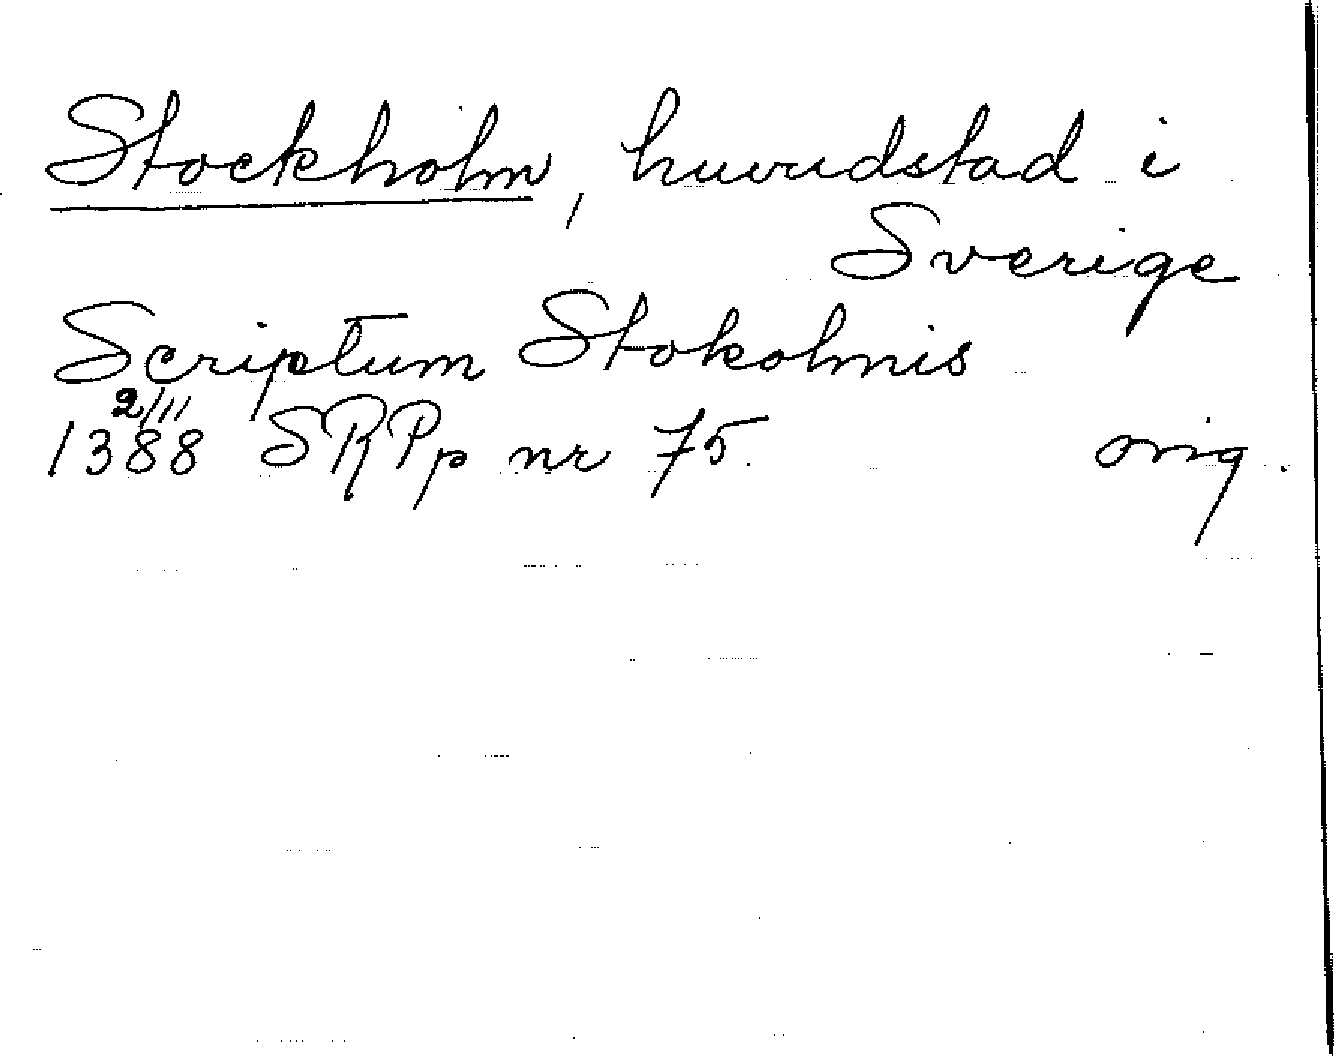 Stockholm, huvudstad i
Sverige
Scriptum Stokolmis
2/11
1388 SRPp nr 75. orig.